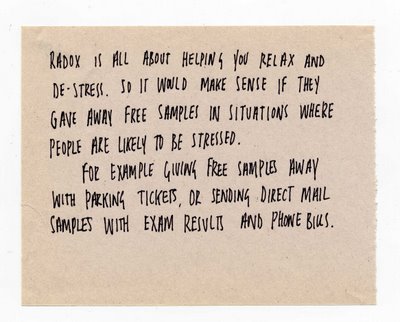 RADOX IS ALL ABOUT HELPING YOU RELAX AND
DE-STRESS. SO IT WOULD MAKE SENSE IF THEY
GAVE AWAY FREE SAMPLES IN SITUATIONS WHERE
PEOPLE ARE LIKELY TO BE STRESSED.
FOR EXAMPLE GIVING FREE SAMPLES AWAY
WITH PARKING TICKETS, OR SENDING DIRECT MAIL
SAMPLES WITH EXAM RESULTS AND PHONE BILLS.